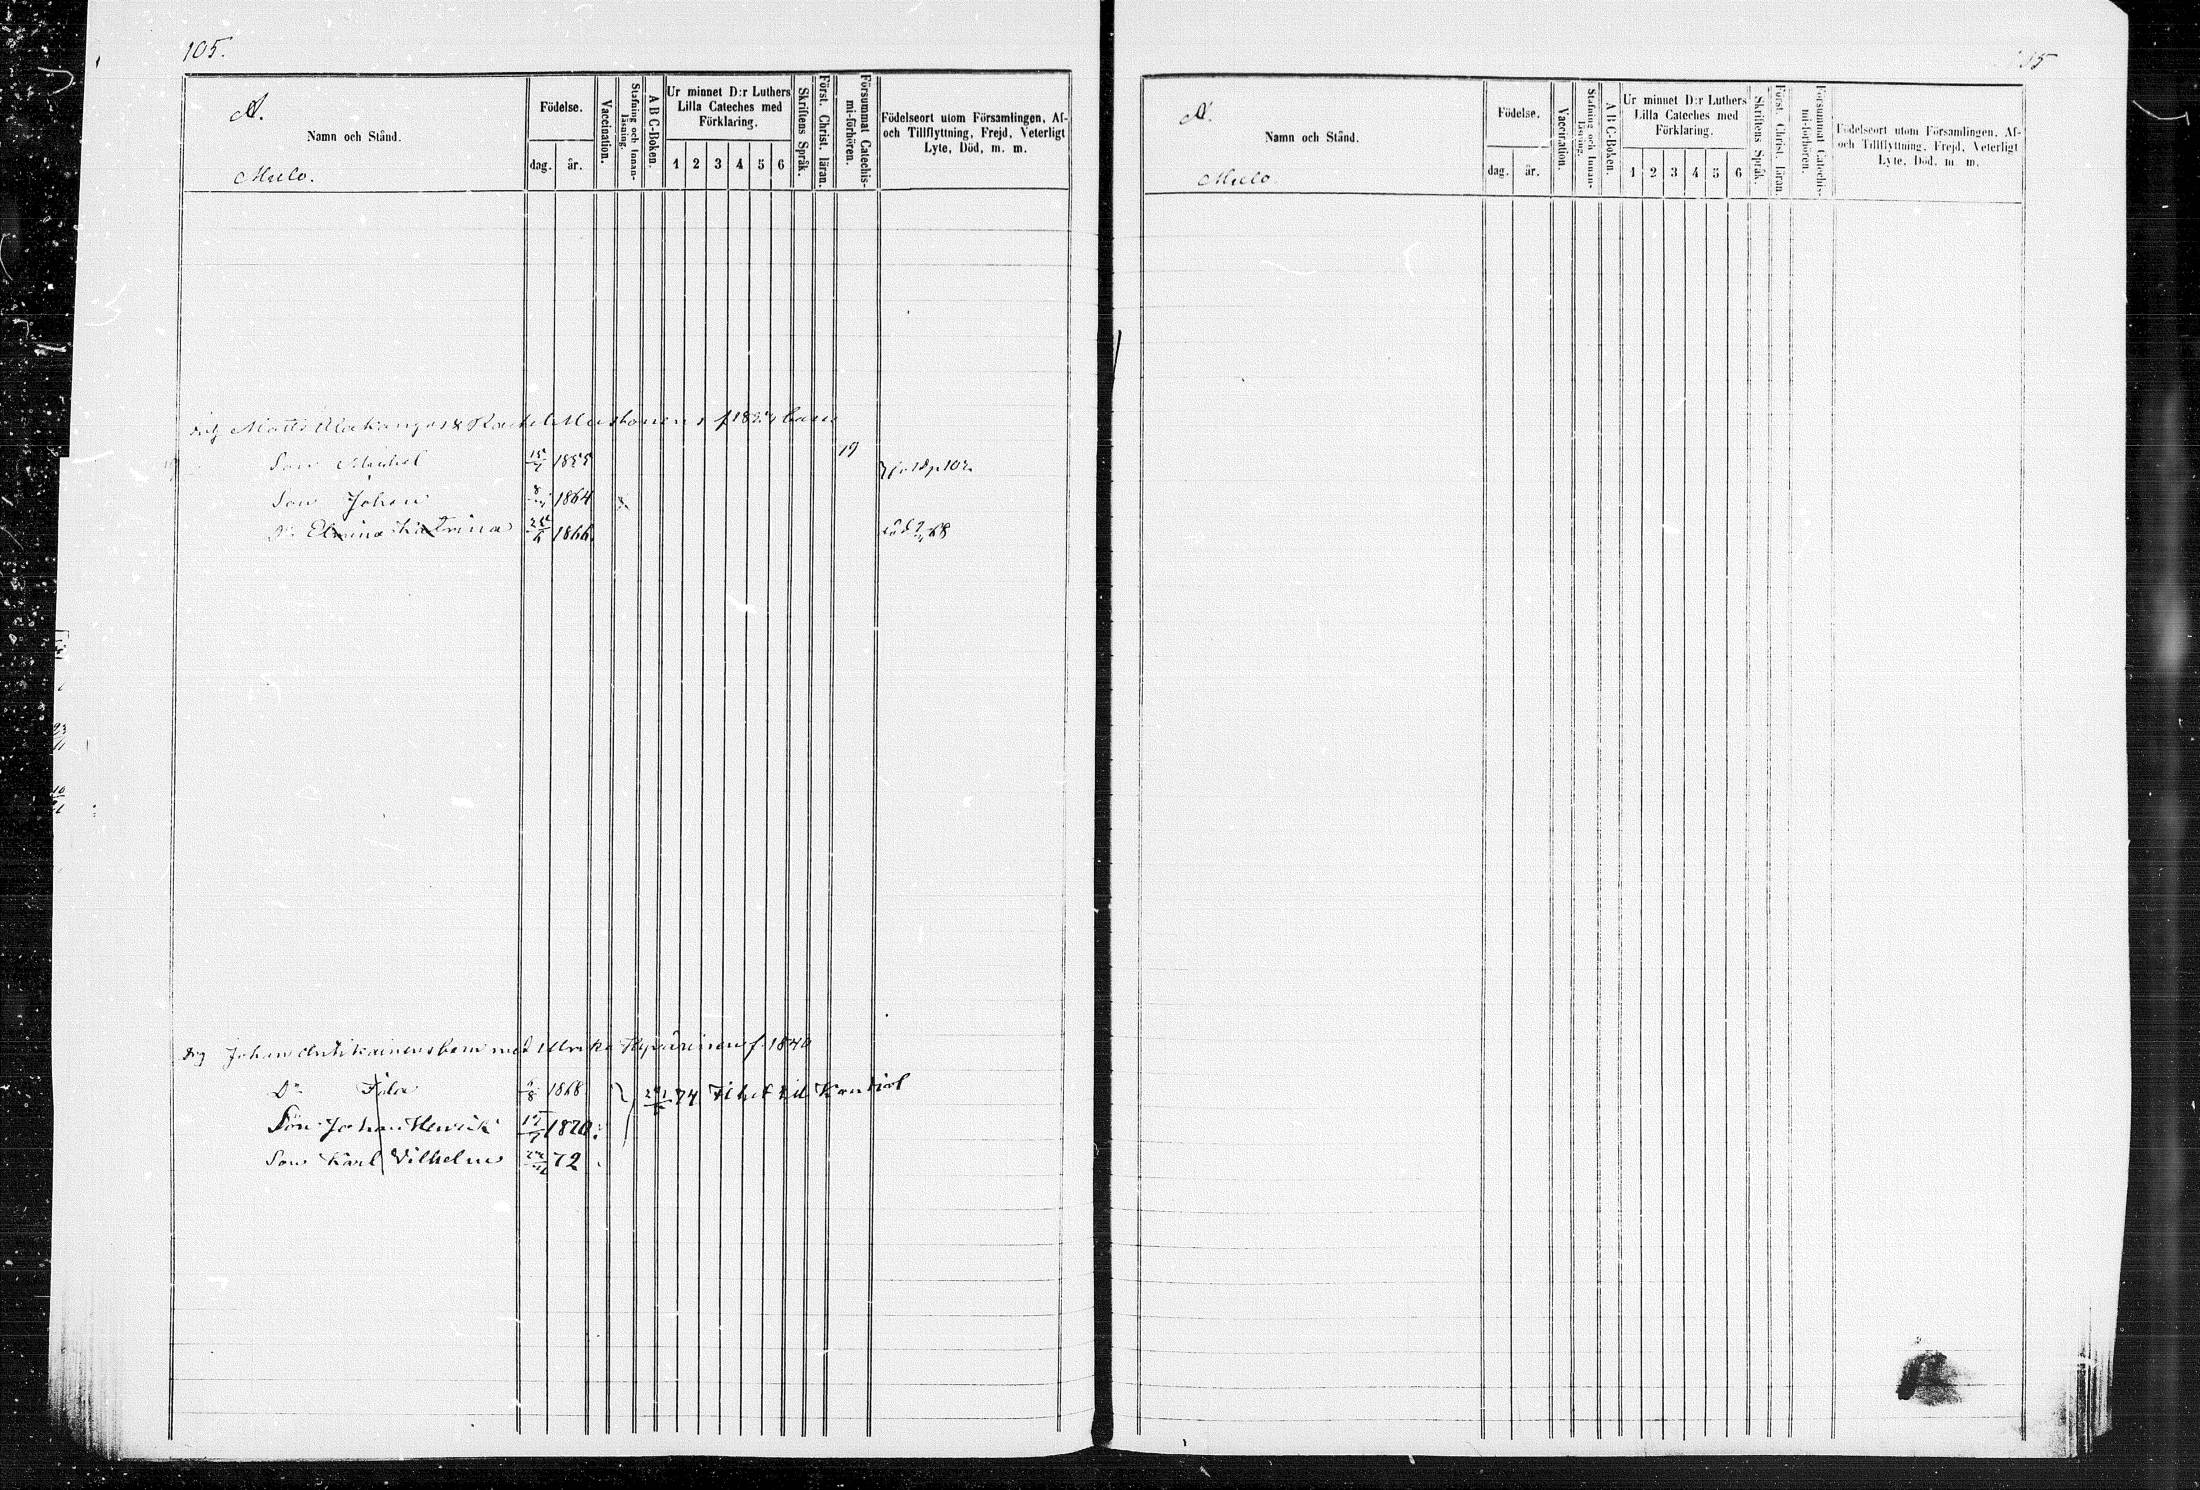 105.
A.
Namn och Stånd.
Mulo.
Födelse.
dag. år.
Vaccination.
Stafning och Innan-läsning.
A B C-Boken.
Ur minnet D:r Luthers
Lilla Cateches med
Förklaring.
1 2 3 4 5 6
Skriftens Språk.
Först. Christ. läran.
Försummat Catechis-mi-förhören.
Födelseort utom Församlingen, Af-
och Tillflyttning, Frejd, Veterligt
Lyte, Död, m. m.
Matts Alakangas & Rachel Mustonens f 1824 barn
Son Michel 15/7 1855 19
Son Johan 1864
Dr Elmina Katrina 1866 död 68
Johan Antikainens barn med Ulrika Hyvärinen f. 1840
Dr Fila /8 1868 74 till Kontiol
Son Johan Henrik 17/7 1870
Son Karl Vilhelm 72
A.
Namn och Stånd.
Mulo
Födelse.
dag. år.
Vaccination.
Stafning och Innan-läsning.
A B C-Boken.
Ur minnet D:r Luthers
Lilla Cateches med
Förklaring.
1 2 3 4 5 6
Skriftens Språk.
Först. Christ. läran.
Försummat Catechis-mi-förhören.
Födelseort utom Församlingen, Af-
och Tillflyttning, Frejd, Veterligt
Lyte, Död, m. m.